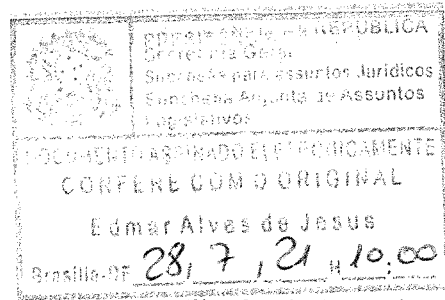 PRESIDÊNCIA DA REPÚBLICA
Secretaria Geral
para assuntos Jurídicos
Adjunta de Assuntos
Legislativos
DOCUMENTO ASSINADO ELETRONICAMENTE
CONFERE COM O ORIGINAL
Edmar Alves de Jesus
Brasília-DF 28, 7, 21 H 10:00